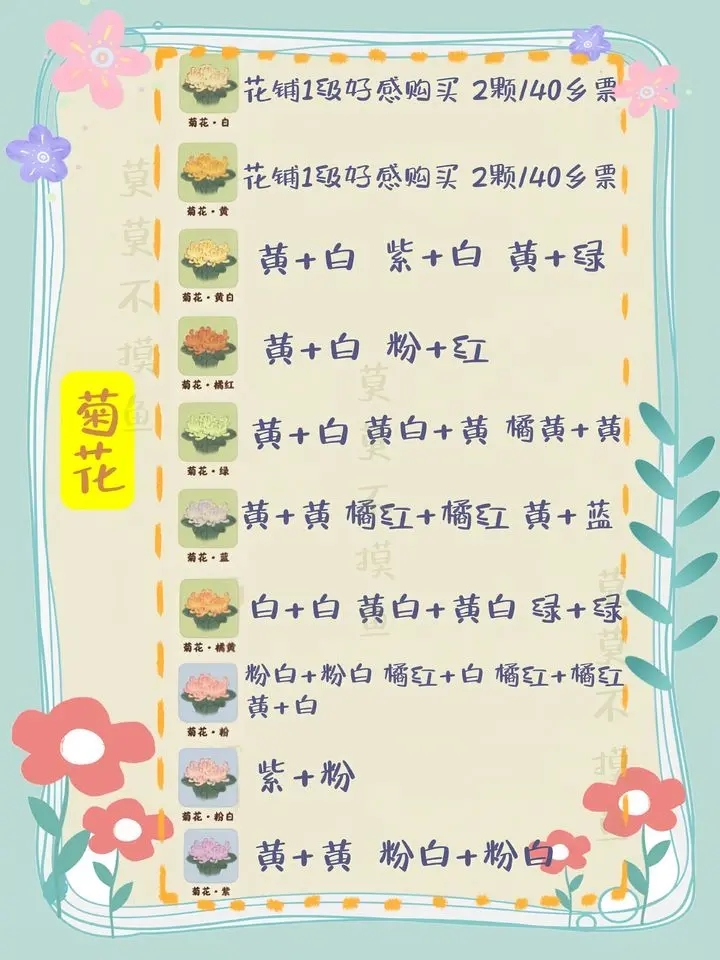 花铺1级好感购买 2颗/40乡票
菊花·白
花铺1级好感购买 2颗/40乡票
菊花·黄
黄+白 紫+白 黄+绿
菊花·黄白
黄+白 粉+红
菊花·橘红
菊花
黄+白 黄白+黄 橘黄+黄
菊花·绿
黄+黄 橘红+橘红 黄+蓝
菊花·蓝
白+白 黄白+黄白 绿+绿
菊花·橘黄
粉白+粉白 橘红+白 橘红+橘红
黄+白
菊花·粉
紫+粉
菊花·粉白
黄+黄 粉白+粉白
菊花·紫
莫莫不摸鱼
莫莫不摸鱼
莫莫不摸鱼